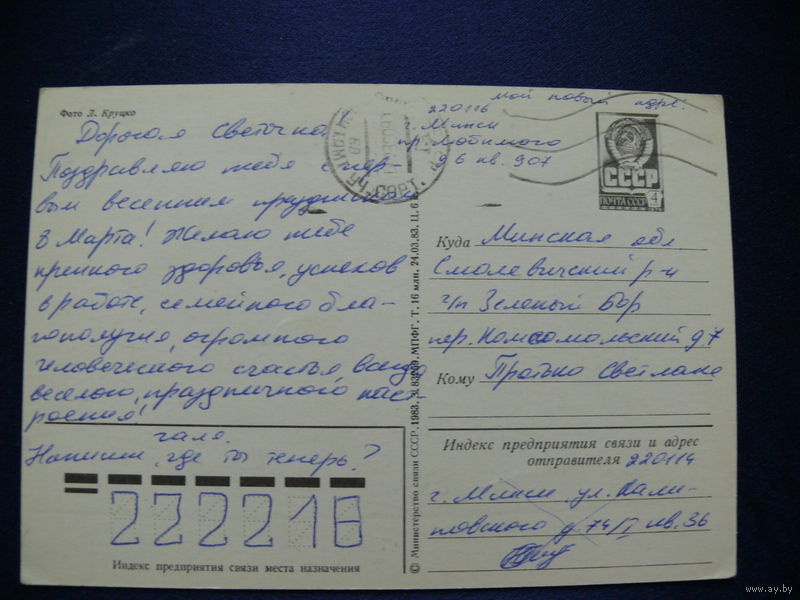 Фото Л. Круцко
Дорогая Светочка!
Поздравляю тебя с пер-
вым весенним праздником
8 Марта! Желаю тебе
крепкого здоровья, успехов
в работе, семейного бла-
гополучия, огромного
человеческого счастья, всегда
веселого, праздничного наст-
роения!
Галя.
Напиши, где ты теперь?
222218
Индекс предприятия связи места назначения
© Министерство связи СССР. 1983. З. 83259. МПФГ. Т. 16 млн. 24.03.83. Ц. 6 к.
Мой новый адрес!
220116
г. Минск
пр. Любимого
д 6 кв. 907
СССР
ПОЧТА СССР 4
Куда Минская обл
Смолевичский р-н
г/п Зеленый Бор
пер. Комсомольский д. 7
Кому Протько Светлане
Индекс предприятия связи и адрес
отправителя 220114
г. Минск ул. Кали-
новского д. 74/1 кв. 36
www.ay.by